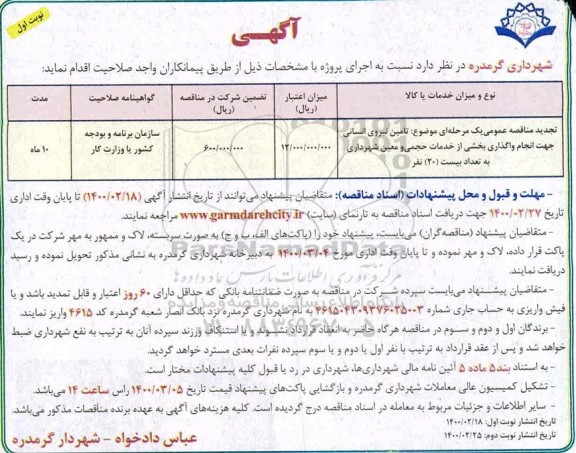 نوبت اول
آگهی
شهرداری گرمدره در نظر دارد نسبت به اجرای پروژه با مشخصات ذیل از طریق پیمانکاران واجد صلاحیت اقدام نماید:
نوع و میزان خدمات یا کالا
میزان اعتبار (ریال)
تضمین شرکت در مناقصه (ریال)
گواهینامه صلاحیت
مدت
تجدید مناقصه عمومی یک مرحله‌ای موضوع: تامین نیروی انسانی
جهت انجام واگذاری بخشی از خدمات حجمی و معین شهرداری
به تعداد بیست (۲۰) نفر
۱۲/۰۰۰/۰۰۰/۰۰۰
۶۰۰/۰۰۰/۰۰۰
سازمان برنامه و بودجه
کشور یا وزارت کار
۱۰ ماه
- مهلت و قبول و محل پیشنهادات (اسناد مناقصه): متقاضیان پیشنهاد می‌توانند از تاریخ انتشار آگهی (۱۴۰۰/۰۲/۱۸) تا پایان وقت اداری
تاریخ ۱۴۰۰/۰۲/۲۷ جهت دریافت اسناد مناقصه به تارنمای (سایت) www.garmdarehcity.ir مراجعه نمایند.
- متقاضیان پیشنهاد (مناقصه‌گران) می‌بایست، پیشنهاد خود را (پاکت‌های الف، ب و ج) به صورت سربسته، لاک و ممهور به مهر شرکت در یک
پاکت قرار داده، لاک و مهر نموده و تا پایان وقت اداری مورخ ۱۴۰۰/۰۳/۰۴ به دبیرخانه شهرداری گرمدره به نشانی مذکور تحویل نموده و رسید
دریافت نمایند.
- متقاضیان پیشنهاد می‌بایست سپرده شرکت در مناقصه به صورت ضمانتنامه بانکی که حداقل دارای ۶۰ روز اعتبار و قابل تمدید باشد و یا
فیش واریزی به حساب جاری شماره ۴۶۱۵۰۴۳۰۹۳۷۶۰۲۵۰۰۳ به نام شهرداری گرمدره نزد بانک انصار شعبه گرمدره کد ۴۶۱۵ واریز نمایند.
- برندگان اول و دوم و سوم در مناقصه هرگاه حاضر به انعقاد قرارداد نشوند و یا استنکاف ورزند سپرده آنان به ترتیب به نفع شهرداری ضبط
خواهد شد و پس از عقد قرارداد به ترتیب با نفر اول یا دوم و یا سوم سپرده نفرات بعدی مسترد خواهد گردید.
- به استناد بند۵ ماده ۵ آئین نامه مالی شهرداری‌ها، شهرداری در رد یا قبول کلیه پیشنهادات مختار است.
- تشکیل کمیسیون عالی معاملات شهرداری گرمدره و بازگشایی پاکت‌های پیشنهاد قیمت تاریخ ۱۴۰۰/۰۳/۰۵ راس ساعت ۱۴ می‌باشد.
- سایر اطلاعات و جزئیات مربوط به معامله در اسناد مناقصه درج گردیده است. کلیه هزینه‌های آگهی به عهده برنده مناقصات مذکور می‌باشد.
تاریخ انتشار نوبت اول: ۱۴۰۰/۰۲/۱۸
تاریخ انتشار نوبت دوم: ۱۴۰۰/۰۲/۲۵
عباس دادخواه - شهردار گرمدره